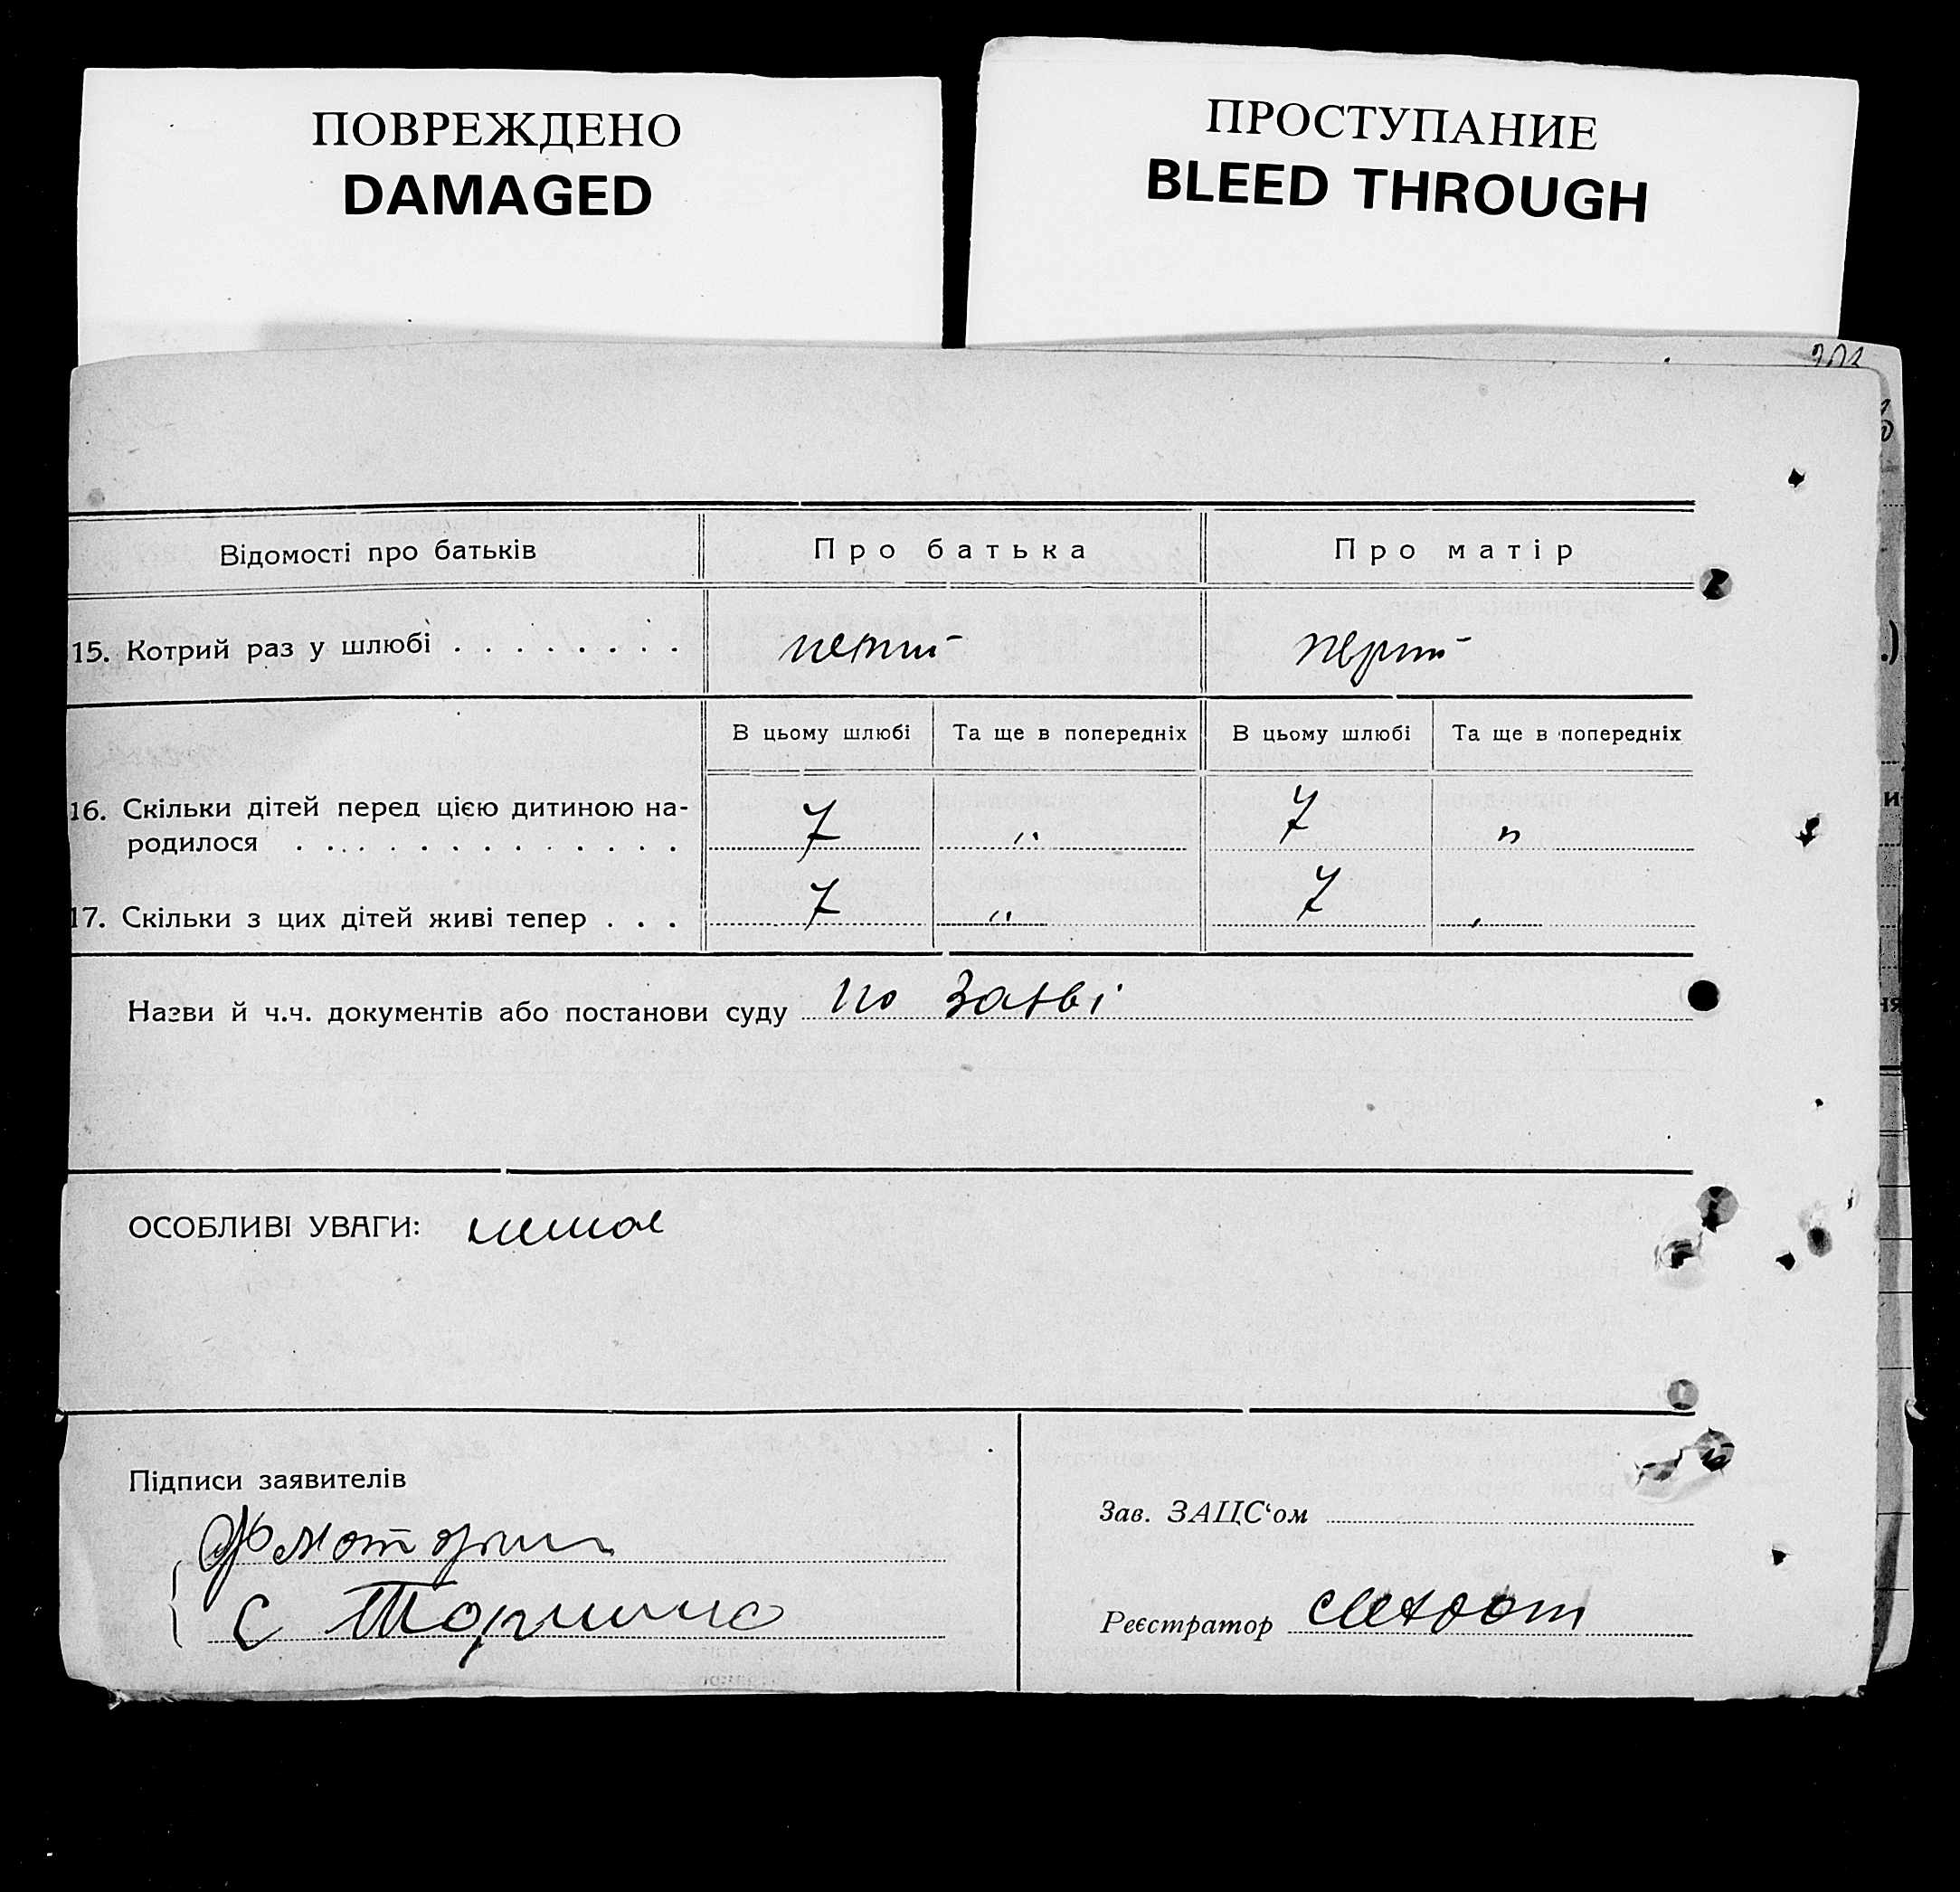 ПОВРЕЖДЕНО
DAMAGED
ПРОСТУПАНИЕ
BLEED THROUGH
Відомості про батьків Про батька Про матір
15. Котрий раз у шлюбі . . . . . . . . перший
В цьому шлюбі Та ще в попередніх В цьому шлюбі Та ще в попередніх
16. Скільки дітей перед цією дитиною на-
родилося . . . . . . . . . . . . . 7 " 7 "
17. Скільки з цих дітей живі тепер . . . 7 " 7
Назви й ч.ч. документів або постанови суду по заяві
ОСОБЛИВІ УВАГИ: немає
Підписи заявителів
Зав. ЗАЦС‘ом
С
Реєстратор